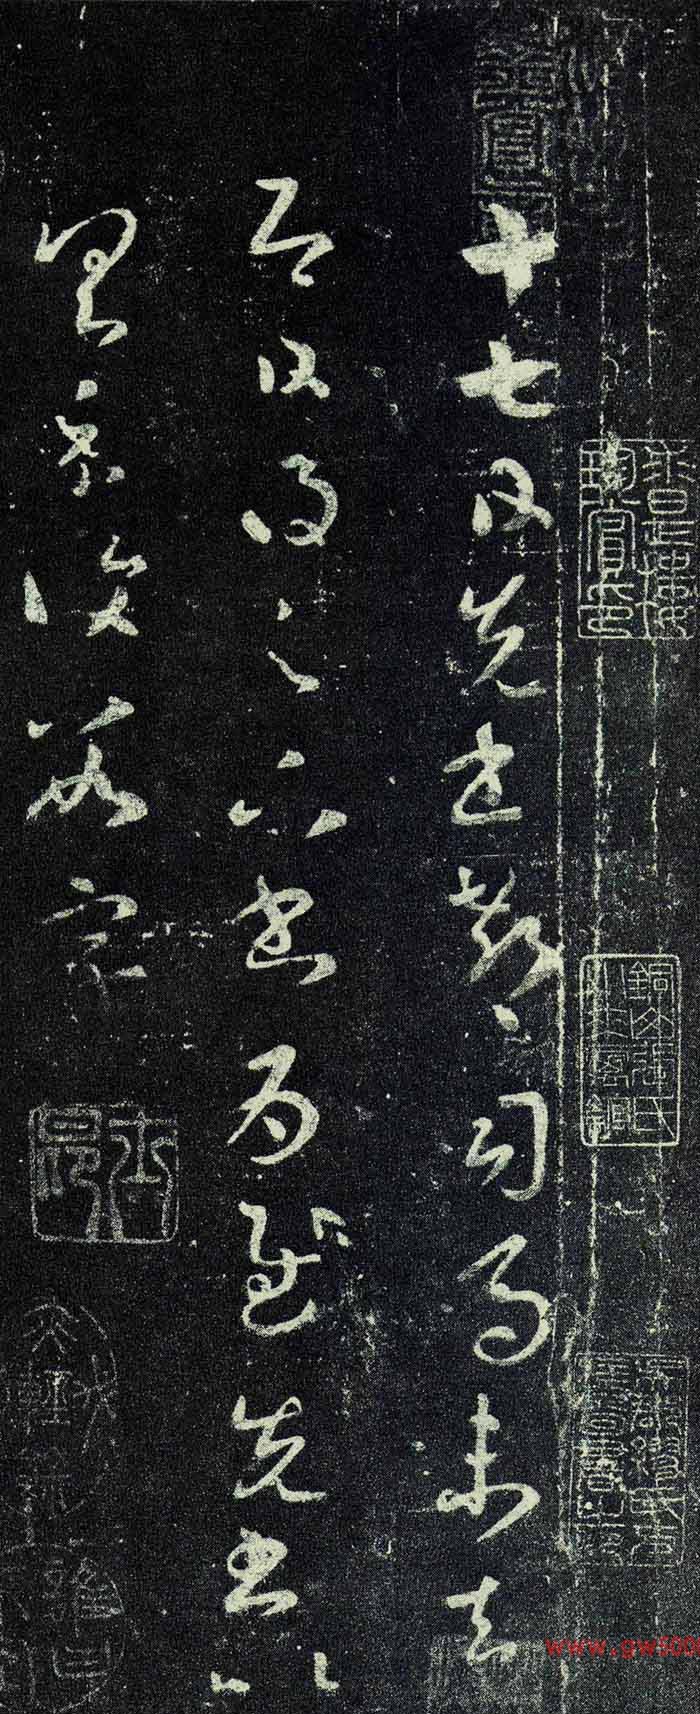 十七日先書郗司馬未去
即日得足下書為慰先書以
具示復數字
www.gw500